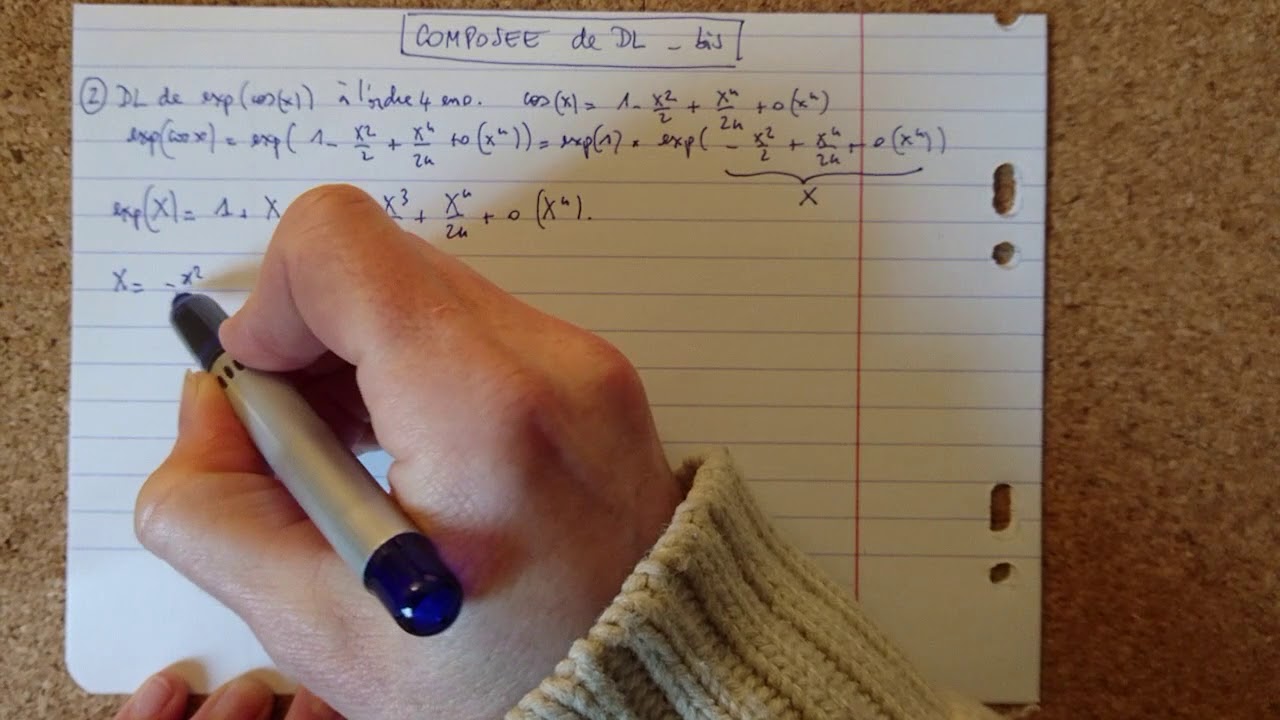 COMPOSEE de DL - bis
② DL de exp(cos(x)) à l'ordre 4 en 0. cos(x) = 1 - x²/2 + x⁴/24 + o(x⁴)
exp(cos x) = exp(1 - x²/2 + x⁴/24 + o(x⁴)) = exp(1) × exp(- x²/2 + x⁴/24 + o(x⁴))
X
exp(X) = 1 + X X³ + X⁴/24 + o(X⁴).
X = -x²